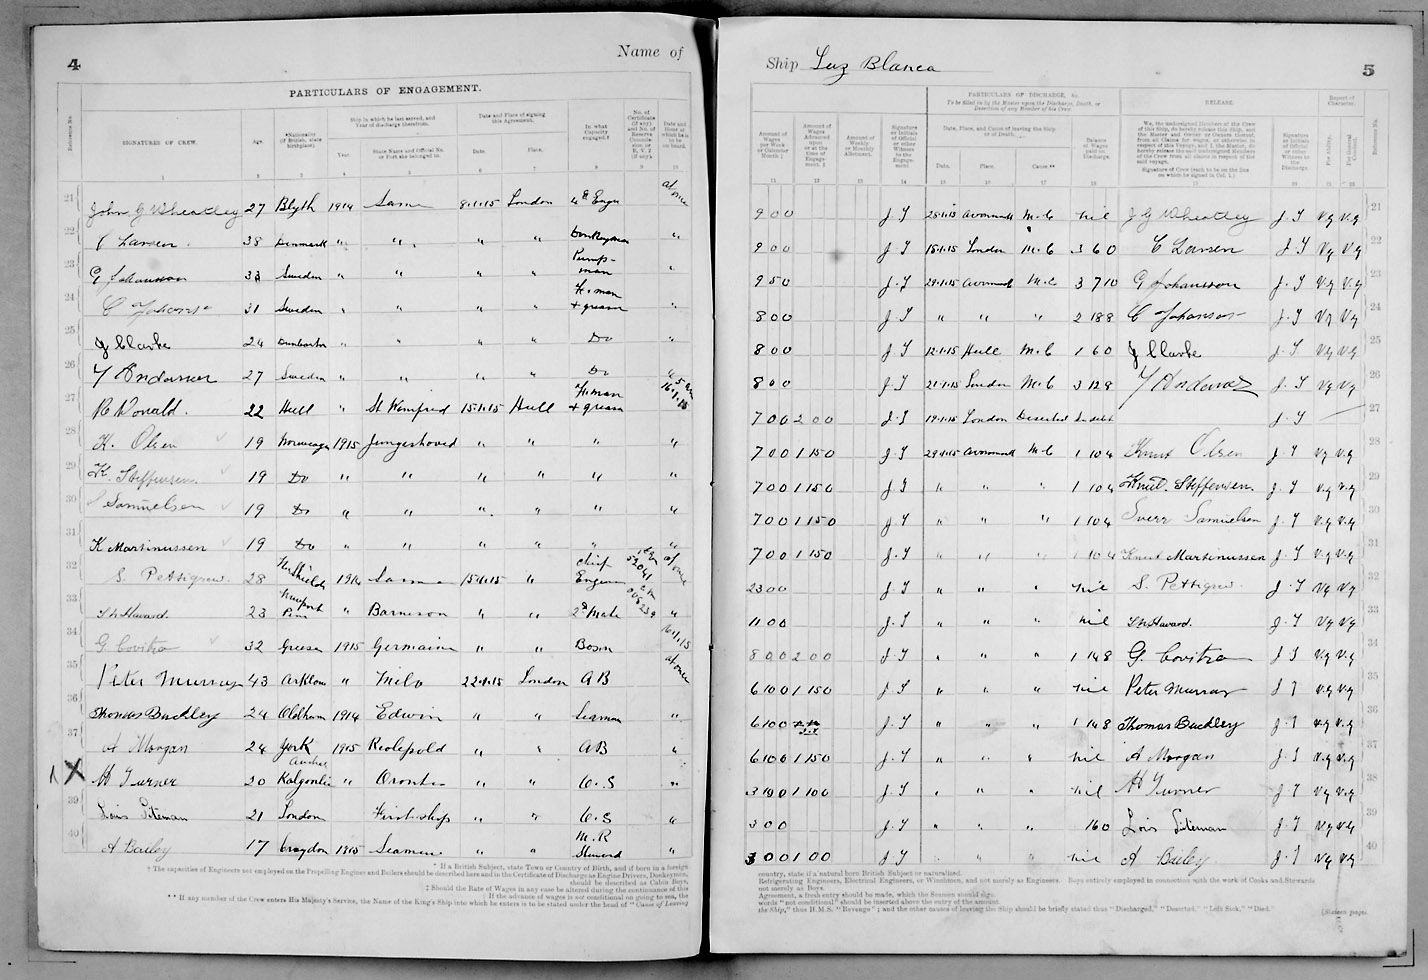 4
Name of
PARTICULARS OF ENGAGEMENT.
Reference No.
SIGNATURES OF CREW.
Age.
*Nationality (If British, state birthplace).
Ship in which he last served, and Year of discharge therefrom.
Year.
State Name and Official No. or Port she belonged to.
Date and Place of signing this Agreement.
Date.
Place.
In what Capacity engaged.†
No. of Certificate (if any)
Date and Hour at which he is to be on board.
1 2 3 4 5 6 7 8 9 10
21 John G Wheatley 27 Blyth 1914 Same 8.1.15 London 4th Engr at once
22 C Larsen 38 Denmark " " " " Donkeyman "
23 G Johansson Sweden " " " " Pump-man "
24 C Johanson 31 Sweden " " " " F. man + greaser "
25 J Clarke 24 Dunbarton " " " " Do "
26 Y Andersson 27 Sweden " " " " Do
27 R Donald. 22 Hull " St Winifred 15.1.15 Hull F. man + greaser 16.1.15
28 K. Olsen 19 Norwegian 1915 Jungshoved " " " "
29 K. Steffensen 19 Do " " " " " "
30 S Samuelsen 19 Do " " " " " "
31 K Martinussen 19 Do " " " " " "
32 S. Pettigrew. 28 Nth Shields 1914 Same 15.1.15 " Chief Engineer 52041 at once
33 Havard. 23 Newport Pem " " " 2d Mate "
34 G. Covitza 32 Greece 1915 Germaine " " Bosn 16.1.15
35 Peter Murray 43 Arklow " Milo 22.1.15 London A B at once
36 Thomas Buckley 24 Oldham 1914 Edwin " " Seaman "
37 A Morgan 24 York 1915 " " A B "
X H Turner 20 Kalgoorlie " Orontes " " O. S "
39 Louis Liteman 21 London First ship " " O. S "
40 A Bailey 17 Croydon 1915 " " M. R Steward "
* If a British Subject, state Town or Country of Birth, and if born in a foreign
† The capacities of Engineers not employed on the Propelling Engines and Boilers should be described here and in the Certificate of Discharge as Engine Drivers, Donkeymen,
should be described as Cabin Boys,
‡ Should the Rate of Wages in any case be altered during the continuance of this
If the advance of wages is not conditional on going to sea, the
** If any member of the Crew enters His Majesty's Service, the Name of the King's Ship into which he enters is to be stated under the head of "Cause of Leaving
Ship Luz Blanca
5
PARTICULARS OF DISCHARGE, &c.
To be filled in by the Master upon the Discharge, Death, or Desertion of any Member of his Crew.
RELEASE.
Report of Character.
Amount of Wages per Week or Calendar Month.‡
Amount of Wages Advanced upon or at the time of Engagement.‡
Amount of Weekly or Monthly Allotment.
Signature or Initials of Official or other Witness to the Engagement
Date, Place, and Cause of leaving the Ship or of Death.
Date. Place. Cause **
Balance of Wages paid on Discharge.
We, the undersigned Members of the Crew of this Ship, do hereby release this Ship, and the Master and Owner or Owners thereof, from all Claims for wages, or otherwise in respect of this Voyage, and I, the Master, do hereby release the said undersigned Members of the Crew from all claims in respect of the said voyage.
Signature of Crew (each to be on the line on which he signed in Col. 1.)
Signature or Initials of Official or other Witness to the Discharge.
For Ability.
For General Conduct.
Reference No.
11 12 13 14 15 16 17 18 19 20 21 22
9 0 0 J. T 28.1.15 Avonmouth M.C nil J G Wheatley J. T V.g V.g 21
9 0 0 J T London M.C 3 6 0 C Larsen J. T Vg Vg 22
9 5 0 J. T 29.1.15 Avonmouth M.C 3 7 10 G Johansson J. T V.g V.g 23
8 0 0 J. T " " " 2 18 8 C Johanson J. T Vg Vg 24
8 0 0 J. T 12.1.15 Hull M.C 1 6 0 J Clarke J. T Vg Vg 25
8 0 0 J. T 21.1.15 London M.C 3 12 8 Y Andersson J. T Vg Vg 26
7 0 0 2 0 0 J. T 19.1.15 London Deserted In debt J. T 27
7 0 0 1 15 0 J. T 29.1.15 Avonmouth M.C 1 10 4 Knut Olsen J. T V.g V.g 28
7 0 0 1 15 0 J. T " " " 1 10 4 Knut. Steffensen J. T V.g V.g 29
7 0 0 1 15 0 J. T " " " 1 10 4 Sverr Samuelsen J. T V.g V.g 30
7 0 0 1 15 0 J. T " " " 1 10 4 Knut Martinussen J. T V.g V.g 31
23 0 0 J. T " " " nil S. Pettigrew. J. T Vg Vg 32
11 0 0 J. T " " " nil Havard. J. T Vg Vg 33
8 0 0 2 0 0 J. T " " " 1 14 8 G. Covitza J. T V.g V.g 34
6 10 0 1 15 0 J. T " " " nil Peter Murray J. T V.g V.g 35
6 10 0 J. T " " " 1 14 8 Thomas Buckley J. T V.g V.g 36
6 10 0 1 15 0 J. T " " " nil A Morgan J. T V.g V.g 37
3 10 0 1 10 0 J. T " " " nil H Turner J. T V.g V.g 38
3 0 0 J. T " " " 1 6 0 Louis Liteman J. T V.g V.g 39
3 0 0 1 0 0 J. T " " " nil A Bailey J. T Vg Vg 40
country, state if a natural born British Subject or naturalized.
Refrigerating Engineers, Electrical Engineers, or Winchmen, and not merely as Engineers. Boys entirely employed in connection with the work of Cooks and Stewards
not merely as Boys.
Agreement, a fresh entry should be made, which the Seaman should sign.
words "not conditional" should be inserted above the entry of the amount.
the Ship," thus H.M.S. "Revenge"; and the other causes of leaving the Ship should be briefly stated thus "Discharged," "Deserted," "Left Sick," "Died."
[Sixteen page.